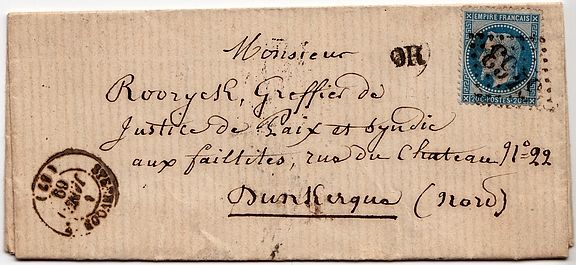 EMPIRE FRANÇAIS
20c POSTES 20c
OR
Monsieur
Rooryck, Greffier de
Justice de Paix et Syndic
aux faillites, rue du Chateau N° 22
Dunkerque (Nord)